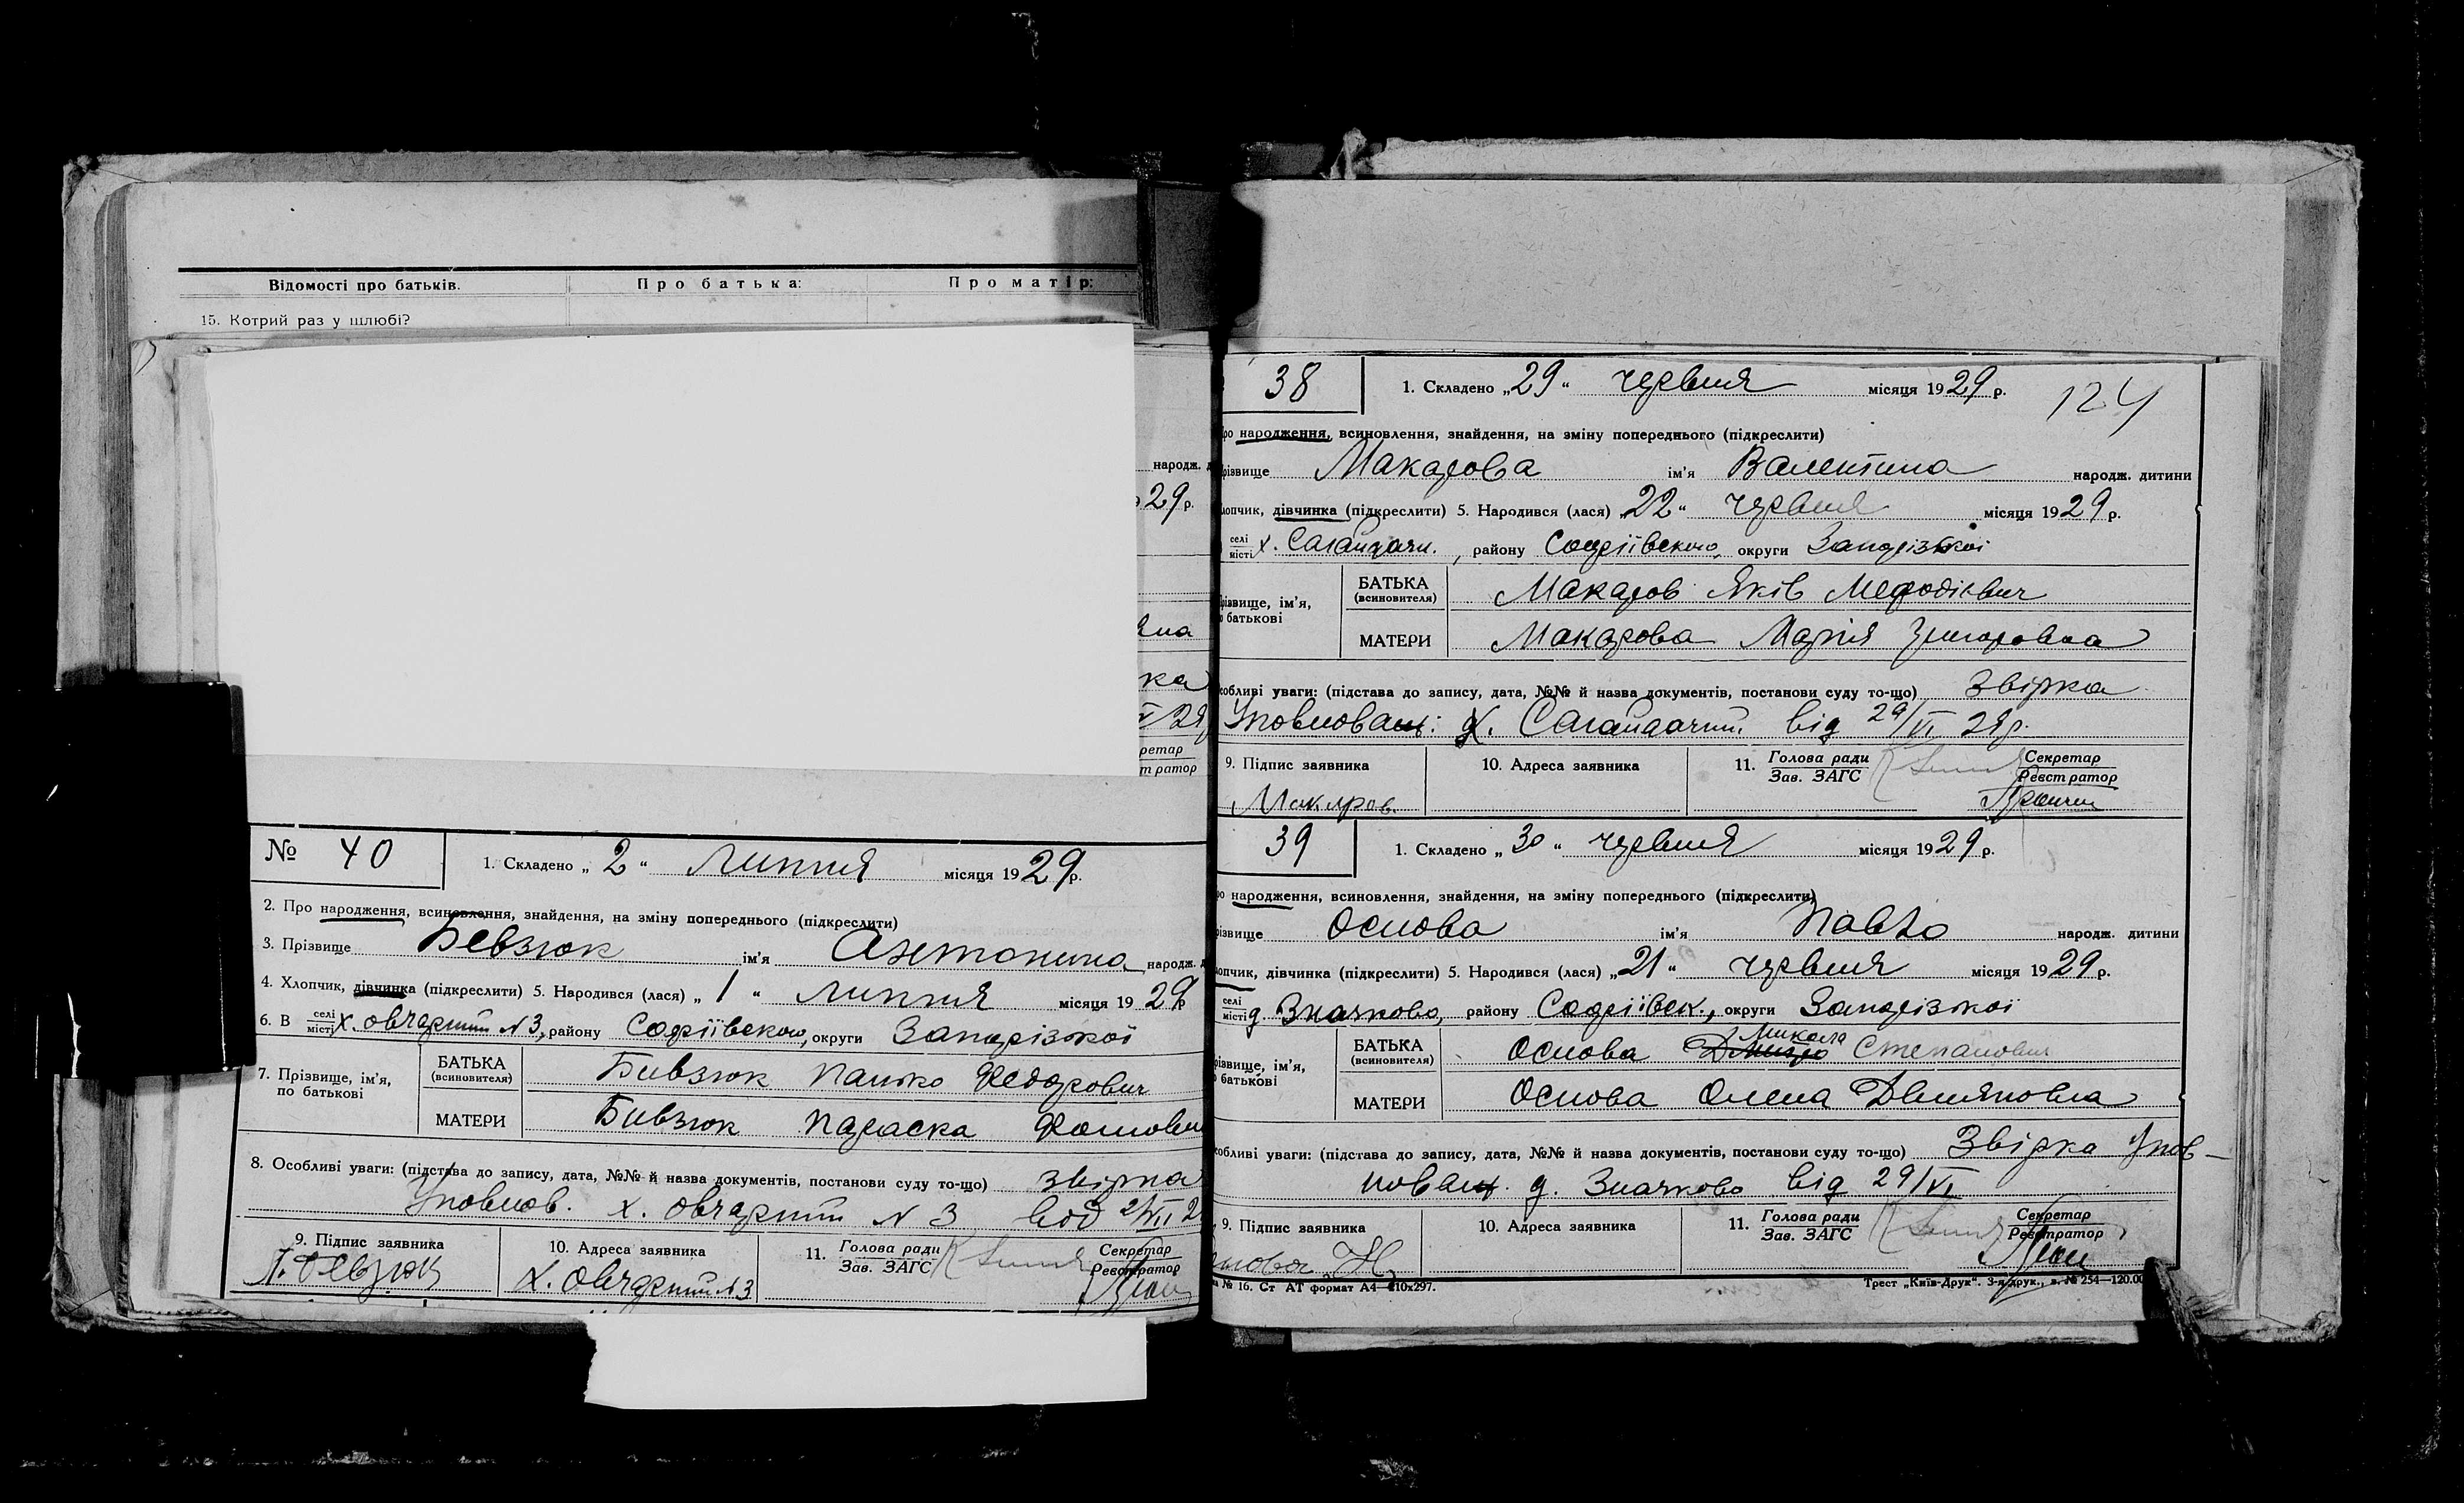 Відомості про батьків. Про батька: Про матір:
15. Котрий раз у шлюбі?
народж.
29 р.
ка
№ 40 1. Складено „ 2 “ Липня місяця 1929 р.
2. Про народження, всиновлення, знайдення, на зміну попереднього (підкреслити)
3. Прізвище Бевзюк ім'я Антонина народж.
4. Хлопчик, дівчинка (підкреслити) 5. Народився (лася) „ 1 “ Липня місяця 1929 р
6. В селі місті х. Овчарний N 3, району Софіївського, округи Запорізької
7. Прізвище, ім'я, по батькові БАТЬКА (всиновителя) Бивзюк Панько Федорович
МАТЕРИ Бивзюк Параска
8. Особливі уваги: (підстава до запису, дата, №№ й назва документів, постанови суду то-що) звірка
Уповнов. х. Овчарний N 3 від 2/VII 2
9. Підпис заявника 10. Адреса заявника 11. Голова ради Зав. ЗАГС Секретар Реєстратор
П. Бевзюк х. Овчарний N 3
38 1. Складено „29“ червня місяця 1929 р. 124
народження, всиновлення, знайдення, на зміну попереднього (підкреслити)
різвище Макарова ім'я Валентина народж. дитини
лопчик, дівчинка (підкреслити) 5. Народився (лася) „22“ червня місяця 1929 р.
селі місті х. Сагайдачн., району Софіївського, округи Запорізької
різвище, ім'я, батькові БАТЬКА (всиновителя) Макаров Яків Мефодієвич
МАТЕРИ Макарова Марія Григоровна
собливі уваги: (підстава до запису, дата, №№ й назва документів, постанови суду то-що) Звірка
Уповноваж: х. Сагайдачний від 29/VI 29 р.
9. Підпис заявника 10. Адреса заявника 11. Голова ради Зав. ЗАГС Секретар Реєстратор
Макаров
39 1. Складено „30“ червня місяця 1929 р.
народження, всиновлення, знайдення, на зміну попереднього (підкреслити)
різвище Основа ім'я Павло народж. дитини
лопчик, дівчинка (підкреслити) 5. Народився (лася) „21“ червня місяця 1929 р.
селі місті д Значково, району Софіївськ., округи Запорізької
Микола
різвище, ім'я, батькові БАТЬКА (всиновителя) Основа Дмитро Степанович
МАТЕРИ Основа Олена Демяновна
собливі уваги: (підстава до запису, дата, №№ й назва документів, постанови суду то-що) Звірка Упов-
новаж. д. Значково від 29/VI
9. Підпис заявника 10. Адреса заявника 11. Голова ради Зав. ЗАГС Секретар Реєстратор
№ 16. Ст АТ формат А4—210х297. Трест „Київ-Друк“. 3-я друк., в. № 254—120.00